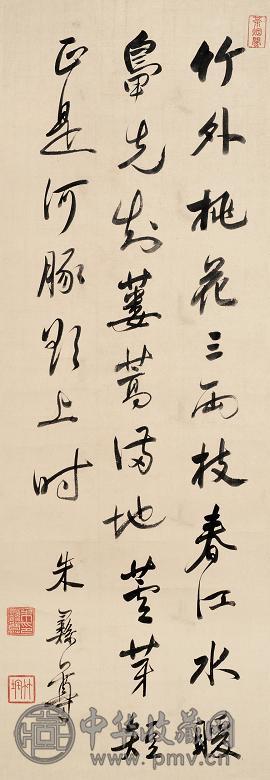 竹外桃花三兩枝春江水暖
鴨先知蔞蒿滿地蘆芽短
正是河豚欲上时
朱彝尊
中华收藏网
www.pmv.cn